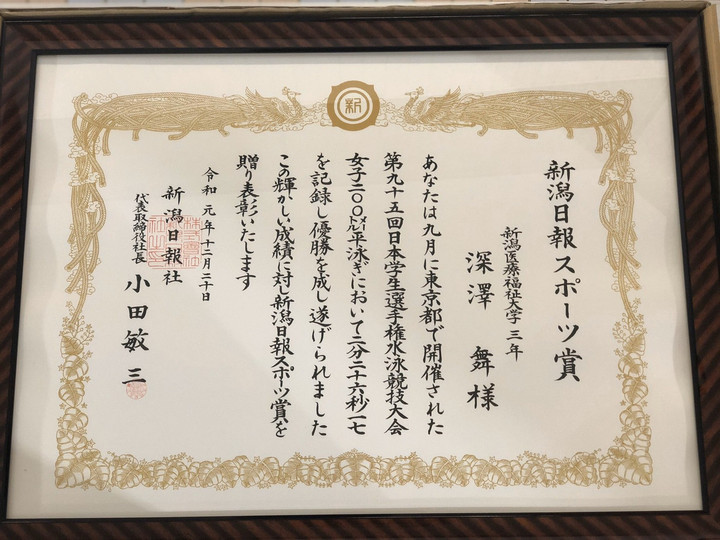 新
新潟日報スポーツ賞
新潟医療福祉大学三年
深澤 舞様
あなたは九月に東京都で開催された
第九十五回日本学生選手権水泳競技大会
女子二〇〇㍍平泳ぎにおいて二分二十六秒一七
を記録し優勝を成し遂げられました
この輝かしい成績に対し新潟日報スポーツ賞を
贈り表彰いたします
令和元年十二月二十日
新潟日報社
代表取締役社長 小田敏三